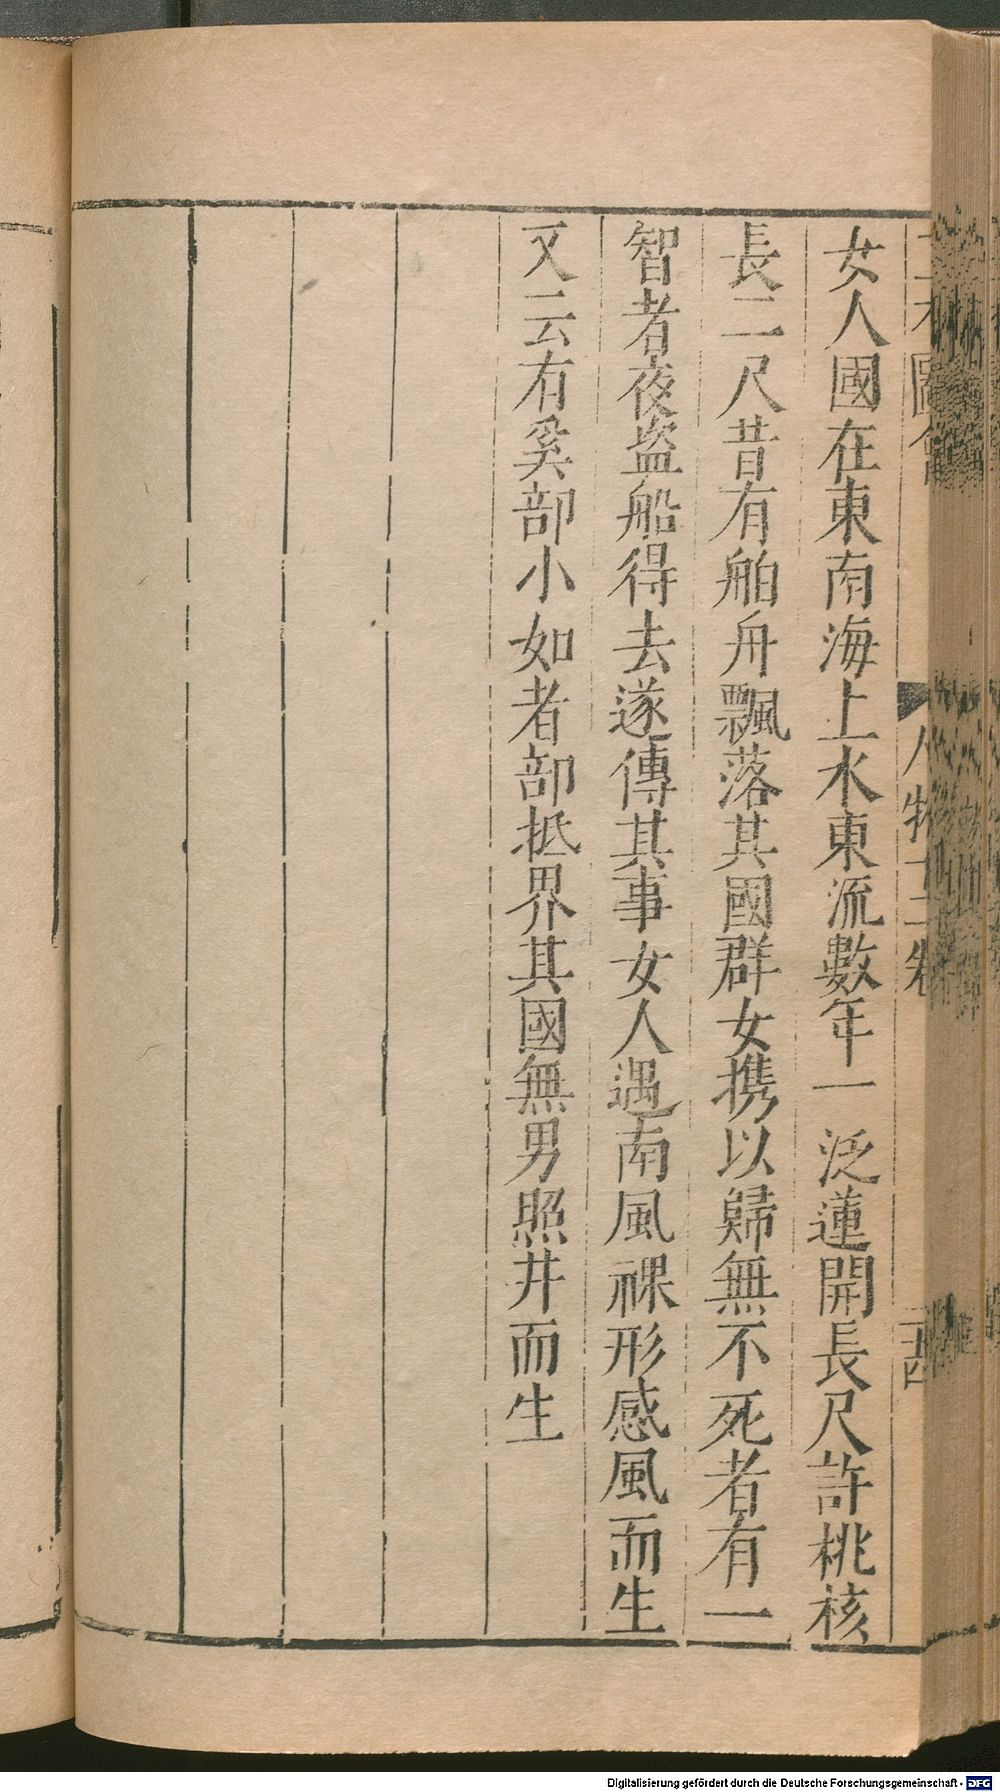 女人國在東南海上水東流數年一泛蓮開長尺許桃核
長二尺昔有舶舟飄落其國群女携以歸無不死者有一
智者夜盗船得去遂傳其事女人遇南風裸形感風而生
又云有奚部小如者部抵界其國無男照井而生
圖會
人物十二卷
Digitalisierung gefördert durch die Deutsche Forschungsgemeinschaft - DFG